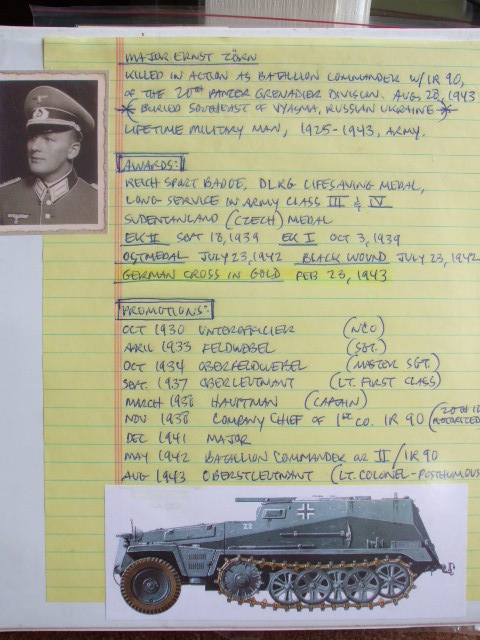 MAJOR ERNST ZÖRN
KILLED IN ACTION AS BATALLION COMMANDER W/ IR 90,
OF THE 20TH PANZER GRENADIER DIVISION. AUG 28, 1943
BURIED SOUTHEAST OF VYASMA, RUSSIAN UKRAINE
LIFETIME MILITARY MAN, 1925-1943, ARMY.
AWARDS:
REICH SPORT BADGE, DLRG LIFESAVING MEDAL,
LONG SERVICE IN ARMY CLASS III & IV
SUDENTANLAND (CZECH) MEDAL
EK II SEPT 18, 1939 EK I OCT 3, 1939
OSTMEDAL JULY 23, 1942 BLACK WOUND JULY 23, 1942
GERMAN CROSS IN GOLD FEB 23, 1943
PROMOTIONS:
OCT 1930 UNTEROFFICIER (NCO)
APRIL 1933 FELDWEBEL (SGT.)
OCT 1934 OBERFELDWEBEL (MASTER SGT.)
SEPT. 1937 OBERLEUTNANT (LT. FIRST CLASS)
MARCH 1938 HAUPTMAN (CAPTAIN)
NOV 1938 COMPANY CHIEF OF 1ST CO. IR 90 (20TH ID MOTORIZED
DEC 1941 MAJOR
MAY 1942 BATALLION COMMANDER II/IR 90
AUG 1943 OBERSTLEUTNANT (LT. COLONEL-POSTHUMOUS